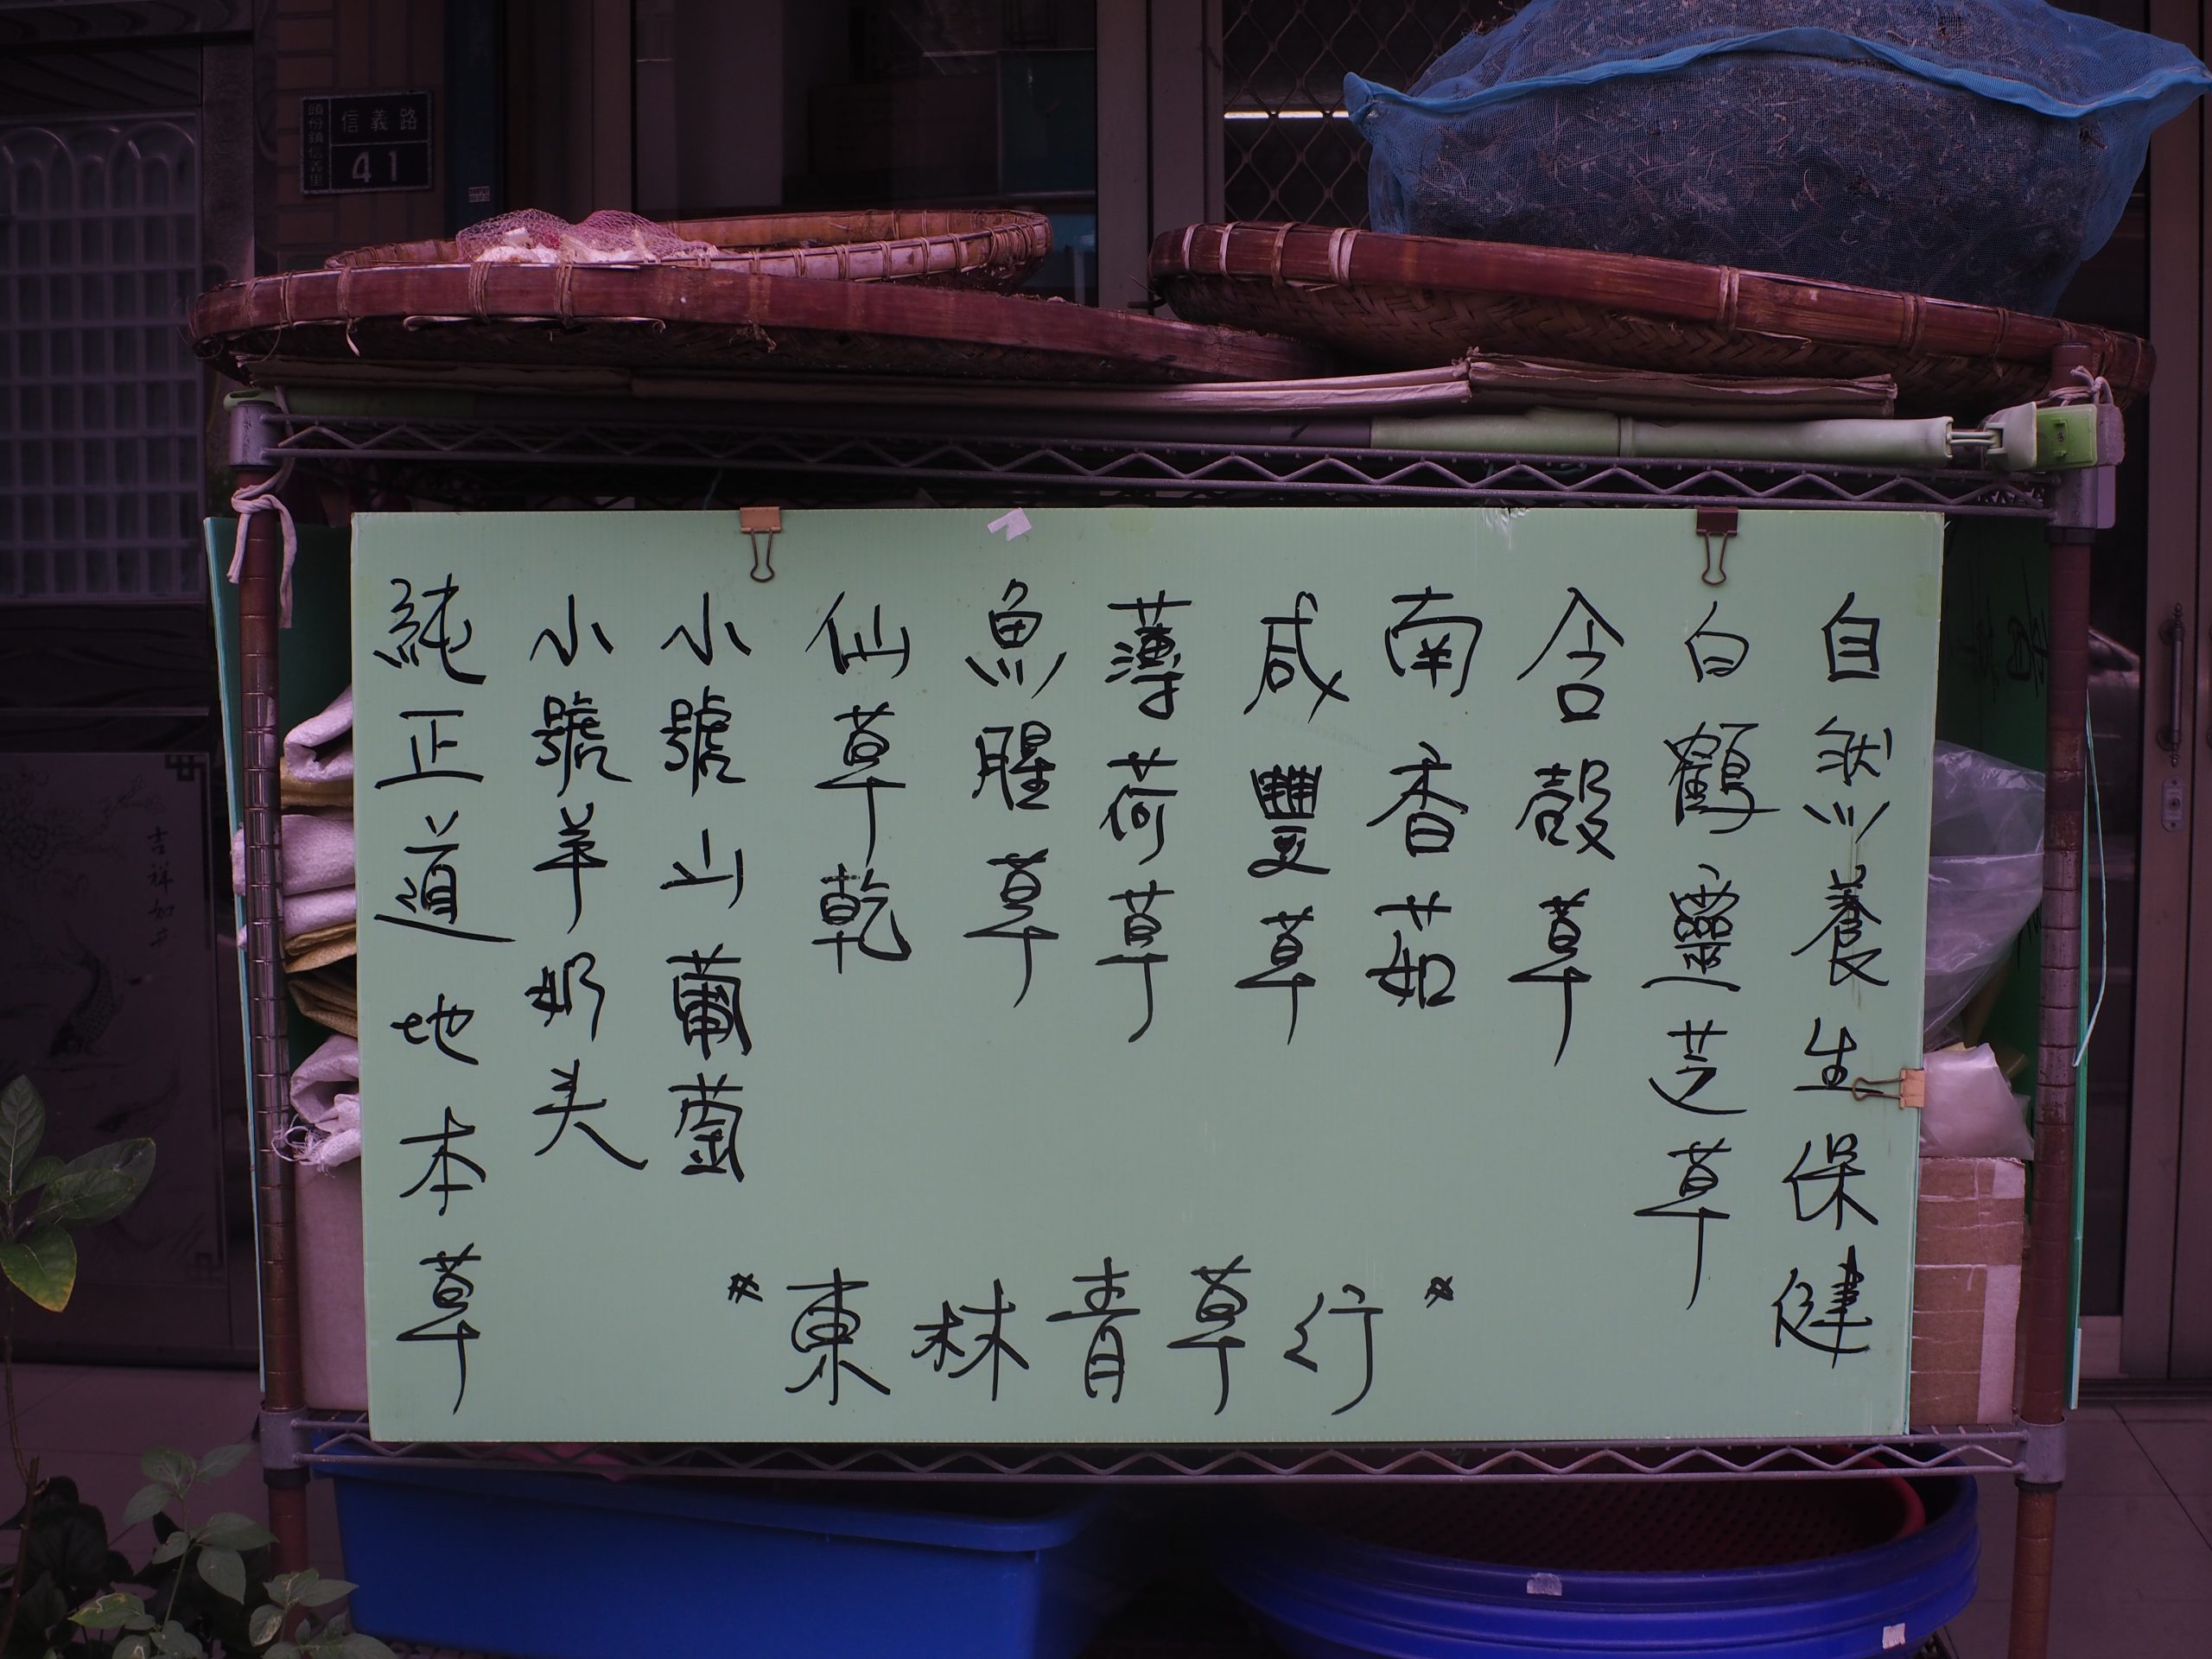 自然養生保健
白鶴靈芝草
含殼草
南香茹
咸豐草
薄荷草
魚腥草
仙草乾
小號山葡萄
小號羊奶头
純正道地本草
*東林青草行*
信義路
41
頭份鎮信義里
吉祥如意